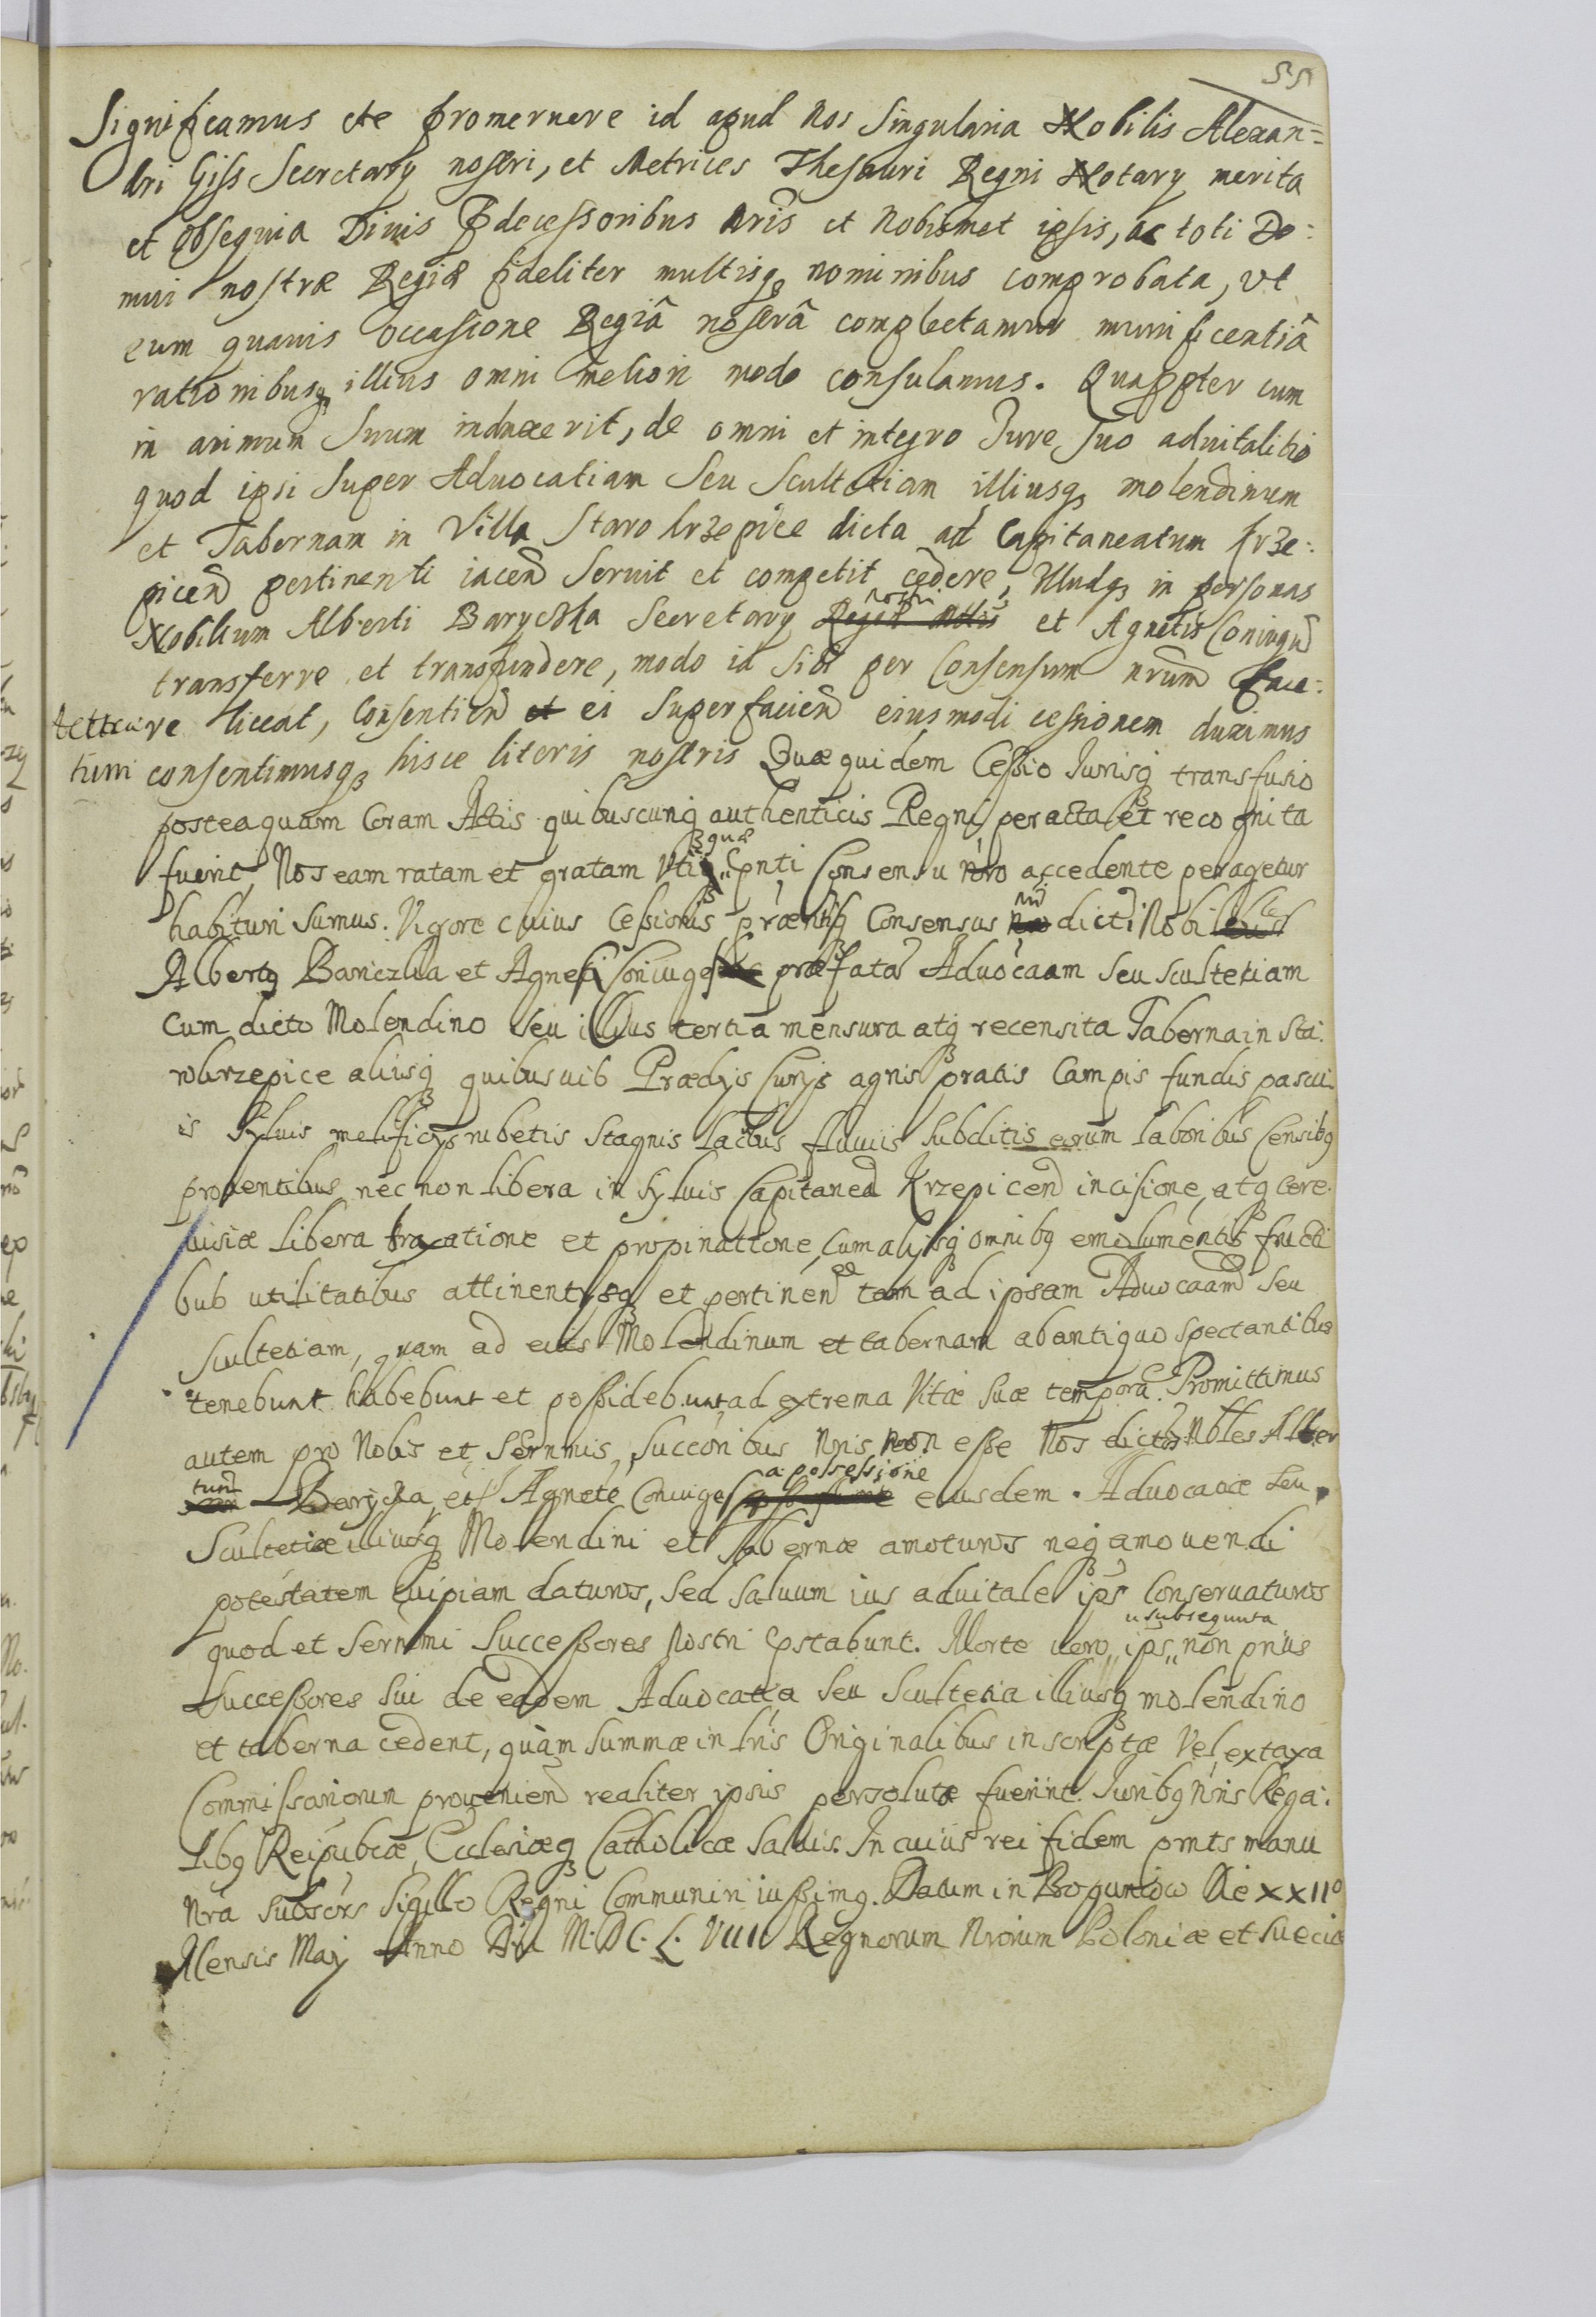 55
Significamus etc promeruere id apud nos singularia Nobilis Alexan=
dri Giss Secretary nostri, et Metrices Thesauri Regni Notary merita
et obsequia Divis Pdecessoribus nris et nobismet ipsis, ac toti Do:
mui nostræ Regiæ fideliter multisq nominibus comprobata, vt
eum quauis occasione Regiâ nostrâ complectamur munificentiâ
rationibusq illius omni meliori modo consulamus. Quappter cum
in animum suum induxerit, de omni et integro Iure suo aduitalitio
quod ipsi super Aduocatiam seu Scultetiam illiusq molendinum
et Tabernam in Villa Staro krzepice dicta ad Capitaneatum krze:
picen pertinenti iacen seruit et competit cedere, Illudq in personas
Nobilium Alberti Baryczka Secretary nostri et Agnetis Coniugũ
transferre et transfundere, modo id sibi per Consensum nrum face:
re liceat, Consentien et ei super facien eiusmodi cessionem duximus
tum consentimusq hisce literis nostris Quæ quidem Cessio Iurisq transfusio
posteaquam Coram Actis quibuscunq authenticis Regni peracta et recognita
fuerit, Nos eam ratam et gratam Vtiq quæ pnti Consensu nro accedente peragetur
habituri sumus. Vigore cuius Cessionis præntisq Consensus nri dicti Nobiles
Albertq Bariczka et Agnes Coniuges præfatã Aduocaam seu scultetiam
cum dicto Molendino seu illius tertia mensura atq recensita Taberna in Sta:
rokrzepice aliisq quibusuis Prædijs Curijs agris pratis Campis fundis pascu
is syluis mellificys rubetis stagnis lacubus fluuiis subditis eorum laboribus Censibq
prouentibus nec non libera in syluis Capitanea Krzepicen incisione, atq Cere:
uisiæ libera braxatione et propinatione, cum alijsq omnibq emolumentis fructi
bus utilitatibus attinentysq et pertinen tam ad ipsam Aduocaam seu
Scultetiam, quam ad eius Molendinum et tabernam ab antiquo spectantibus
tenebunt habebunt et possidebunt ad extrema Vitæ suæ tempora. Promittimus
autem pro Nobis et Sernmis Succoribus Nris non esse Nos dictos Nobles Alber
tum Baryczka, et Agnete Coniuges a possessione eiusdem Aduocatiæ seu
Scultetiæ illiusq Molendini et Tabernæ amoturos neq amouendi
potestatem cuipiam daturos, sed saluum ius aduitale ips conseruaturos
quod et Sernmi Successores Nostri pstabunt. Morte uero ips subsequuta non prius
successores sui de eadem Aduocatia seu Scultetia illiusq molendino
et taberna cedent, quàm summæ in Lris Originalibus inscriptæ Vel ex taxa
Commissariorum prouenien realiter ipsis persolutæ fuerint. Iuribq Nris Rega:
libq Reipubcæ Ecclesiæq Catholicæ saluis. In cuius rei fidem pnts manu
nra subscrs Sigillo Regni Communiri iussimq. Datum in Die XXII°
Mensis Maij Anno Dni M.DC.L.VIII Regnorum Nrorum Poloniæ et Sueciæ